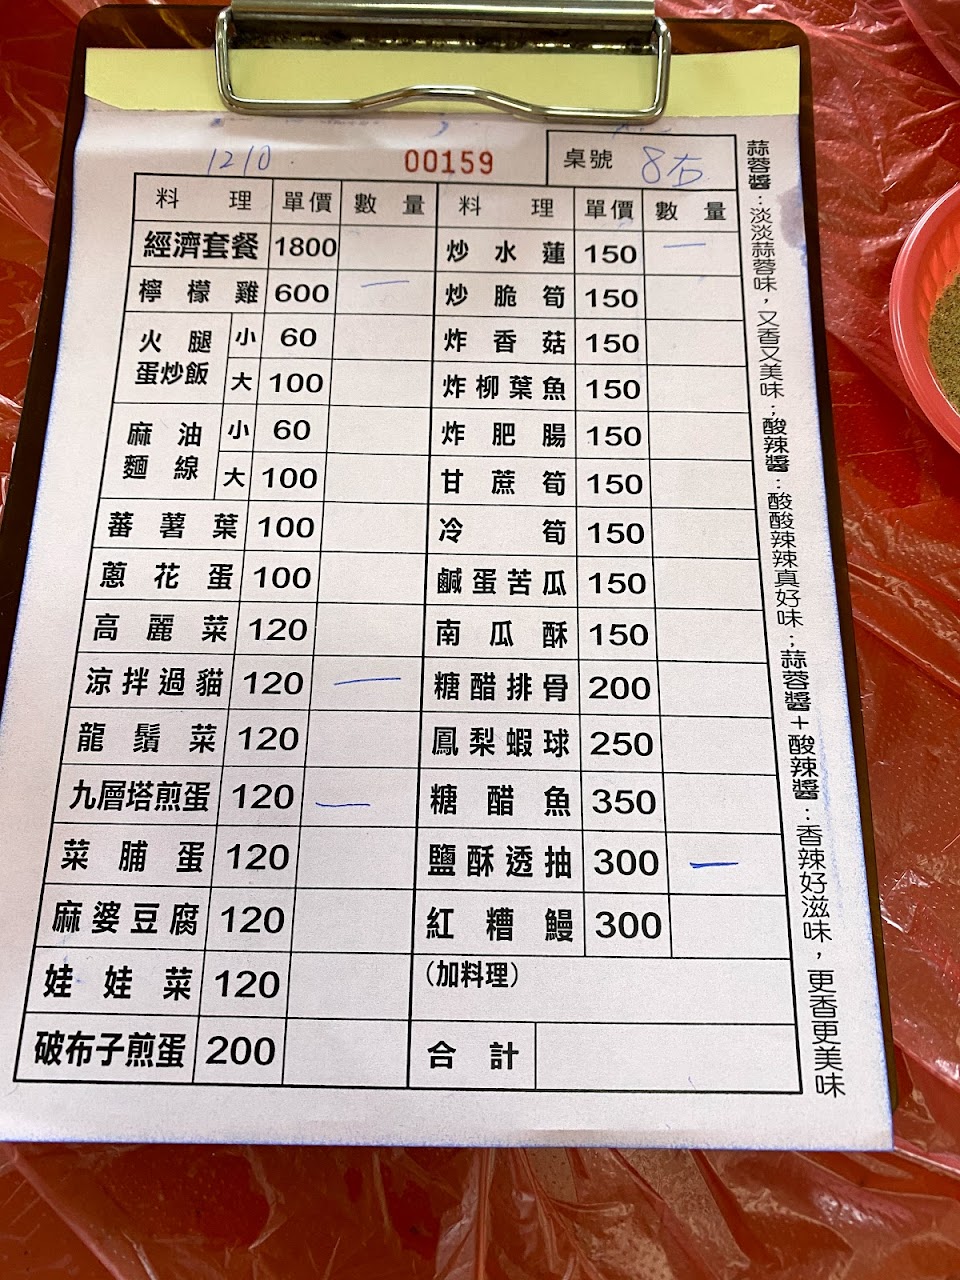 1210.
00159
桌號 8右
料理 單價 數量 料理 單價 數量
經濟套餐 1800 炒水蓮 150 一
檸檬雞 600 一 炒脆筍 150
火腿蛋炒飯 小 60 炸香菇 150
大 100 炸柳葉魚 150
麻油麵線 小 60 炸肥腸 150
大 100 甘蔗筍 150
蕃薯葉 100 冷筍 150
蔥花蛋 100 鹹蛋苦瓜 150
高麗菜 120 南瓜酥 150
涼拌過貓 120 一 糖醋排骨 200
龍鬚菜 120 鳳梨蝦球 250
九層塔煎蛋 120 一 糖醋魚 350
菜脯蛋 120 鹽酥透抽 300 一
麻婆豆腐 120 紅糟鰻 300
娃娃菜 120 (加料理)
破布子煎蛋 200 合計
蒜蓉醬：淡淡蒜蓉味，又香又美味；酸辣醬：酸酸辣辣真好味；蒜蓉醬＋酸辣醬：香辣好滋味，更香更美味